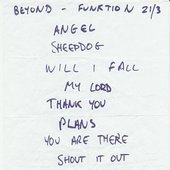 BEYOND - FUNKTION 21/3
ANGEL
SHEEPDOG
WILL I FALL
MY LORD
THANK YOU
PLANS
YOU ARE THERE
SHOUT IT OUT